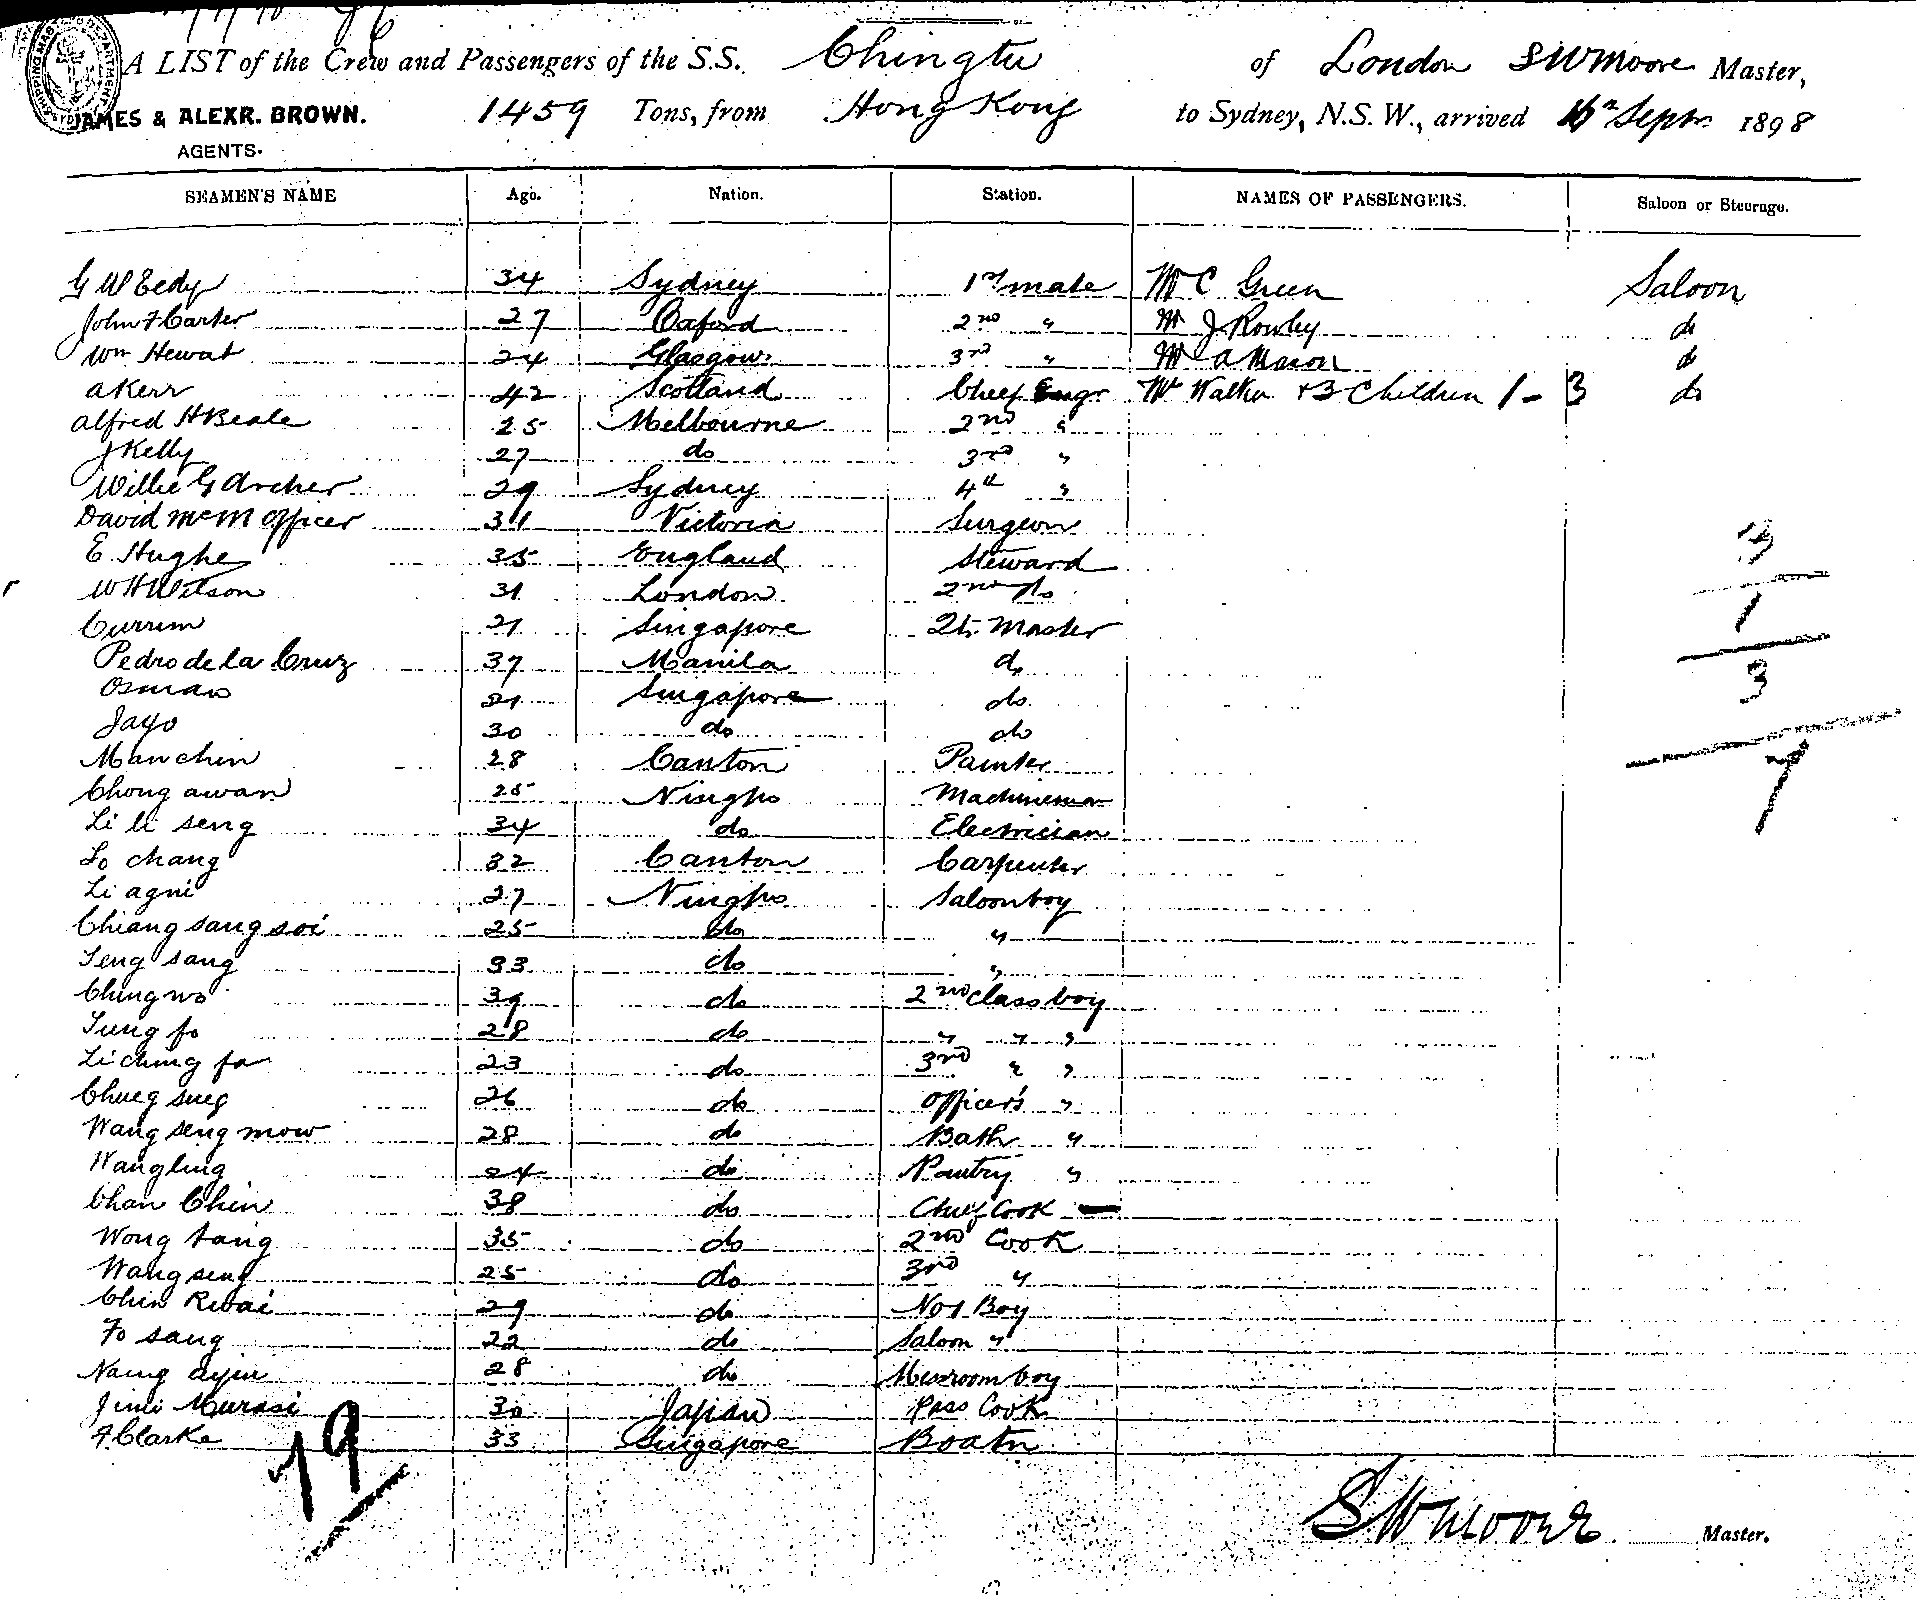 A LIST of the Crew and Passengers of the S.S. Chingtu of London S W Moore Master,
JAMES & ALEXR. BROWN. 1459 Tons, from Hong Kong to Sydney, N.S.W., arrived 16th Septr 1898
AGENTS.
SEAMEN'S NAME Age. Nation. Station. NAMES OF PASSENGERS. Saloon or Steerage.
G W Eedy 34 Sydney 1st mate Mr C Green Saloon
John F Carter 27 Oxford 2nd " Mr J Rowley do
Wm Hewat 24 Glasgow 3rd " Mr A Mason do
A Kerr 42 Scotland Chief Engr Mr Walker + 3 Children 1 - 3 do
Alfred H Beale 25 Melbourne 2nd "
J Kelly 27 do 3rd "
Willie G Archer 29 Sydney 4th "
David McM Officer 31 Victoria Surgeon
E. Hughes 35 England Steward 3
W H Wilson 31 London 2nd do
Currim 21 Singapore Qtr Master 1
Pedro de la Cruz 37 Manila do 3
Osman 21 Singapore do
Jayo 30 do do
Man chin 28 Canton Painter 7
Chong awan 25 Ningpo Machineman
Li li seng 34 do Electrician
Lo chang 32 Canton Carpenter
Li agni 27 Ningpo Saloonboy
Chiang sang soi 25 do "
Seng sang 33 do "
Ching wo 39 do 2nd class boy
Sung fo 28 do " " "
Li ching fa 23 do 3rd " "
Chueg sueg 26 do officer's "
Wang seng mow 28 do Bath "
Wangling 24 do Pantry "
Chan Chin 38 do Chief Cook
Wong tang 35 do 2nd Cook
Wang seng 25 do 3rd "
Chin Kwai 29 do No 1 Boy
Fo sang 22 do Saloon "
Naing ayin 28 do Messroom boy
Jimi Murasi 30 Japan Pass Cook
F Clarke 33 Singapore Boatn
79
S W Moore Master.